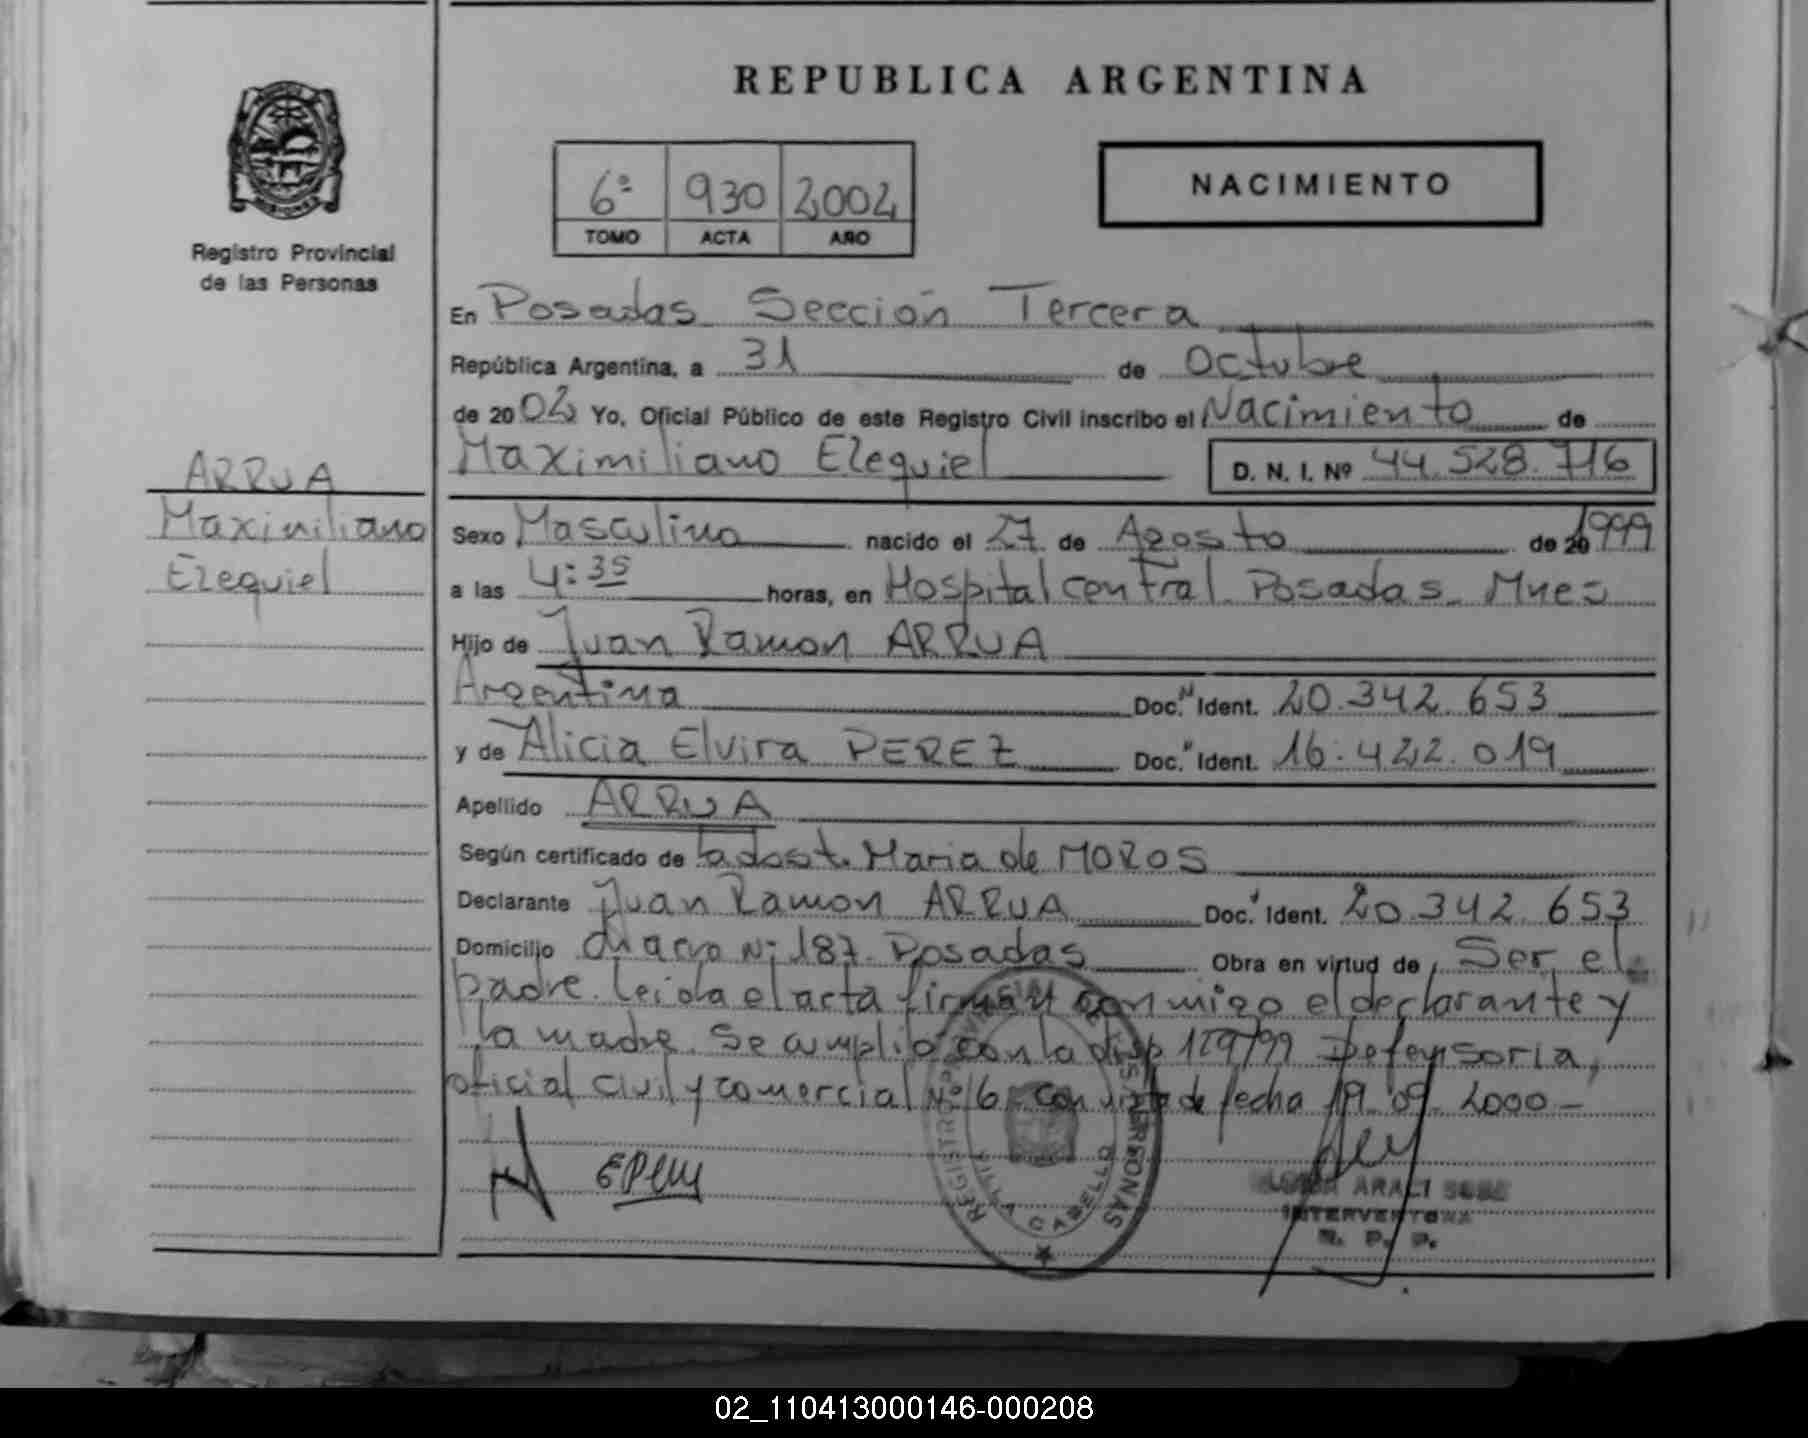 REPUBLICA ARGENTINA
MISIONES
Registro Provincial
de las Personas
6º 930 2002
TOMO ACTA AÑO
NACIMIENTO
En Posadas Sección Tercera
República Argentina, a 31 de Octubre
de 2002 Yo, Oficial Público de este Registro Civil inscribo el Nacimiento de
Maximiliano Ezequiel D. N. I. Nº 44.528.716
ARRUA
Maximiliano
Ezequiel
Sexo Masculino nacido el 27 de Agosto de 20 1999
a las 4:35 horas, en Hospital central Posadas Mnes
Hijo de Juan Ramon ARRUA
Argentina Doc. N Ident. 20.342.653
y de Alicia Elvira PEREZ Doc. Ident. 16.422.019
Apellido ARRUA
Según certificado de la obst. Maria de MOROS
Declarante Juan Ramon ARRUA Doc. Ident. 20.342.653
Domicilio Nº 187 Posadas Obra en virtud de Ser el
padre. Leida el acta firman conmigo el declarante y
la madre. Se cumplio con la disp 129/99 Defensoria
oficial civil y comercial Nº 6 con vista de fecha 19.09.2000
REGISTRO PROVINCIAL DE LAS PERSONAS
VILLA CABELLO
ARALI
INTERVENTORA
R. P. P.
02_110413000146-000208